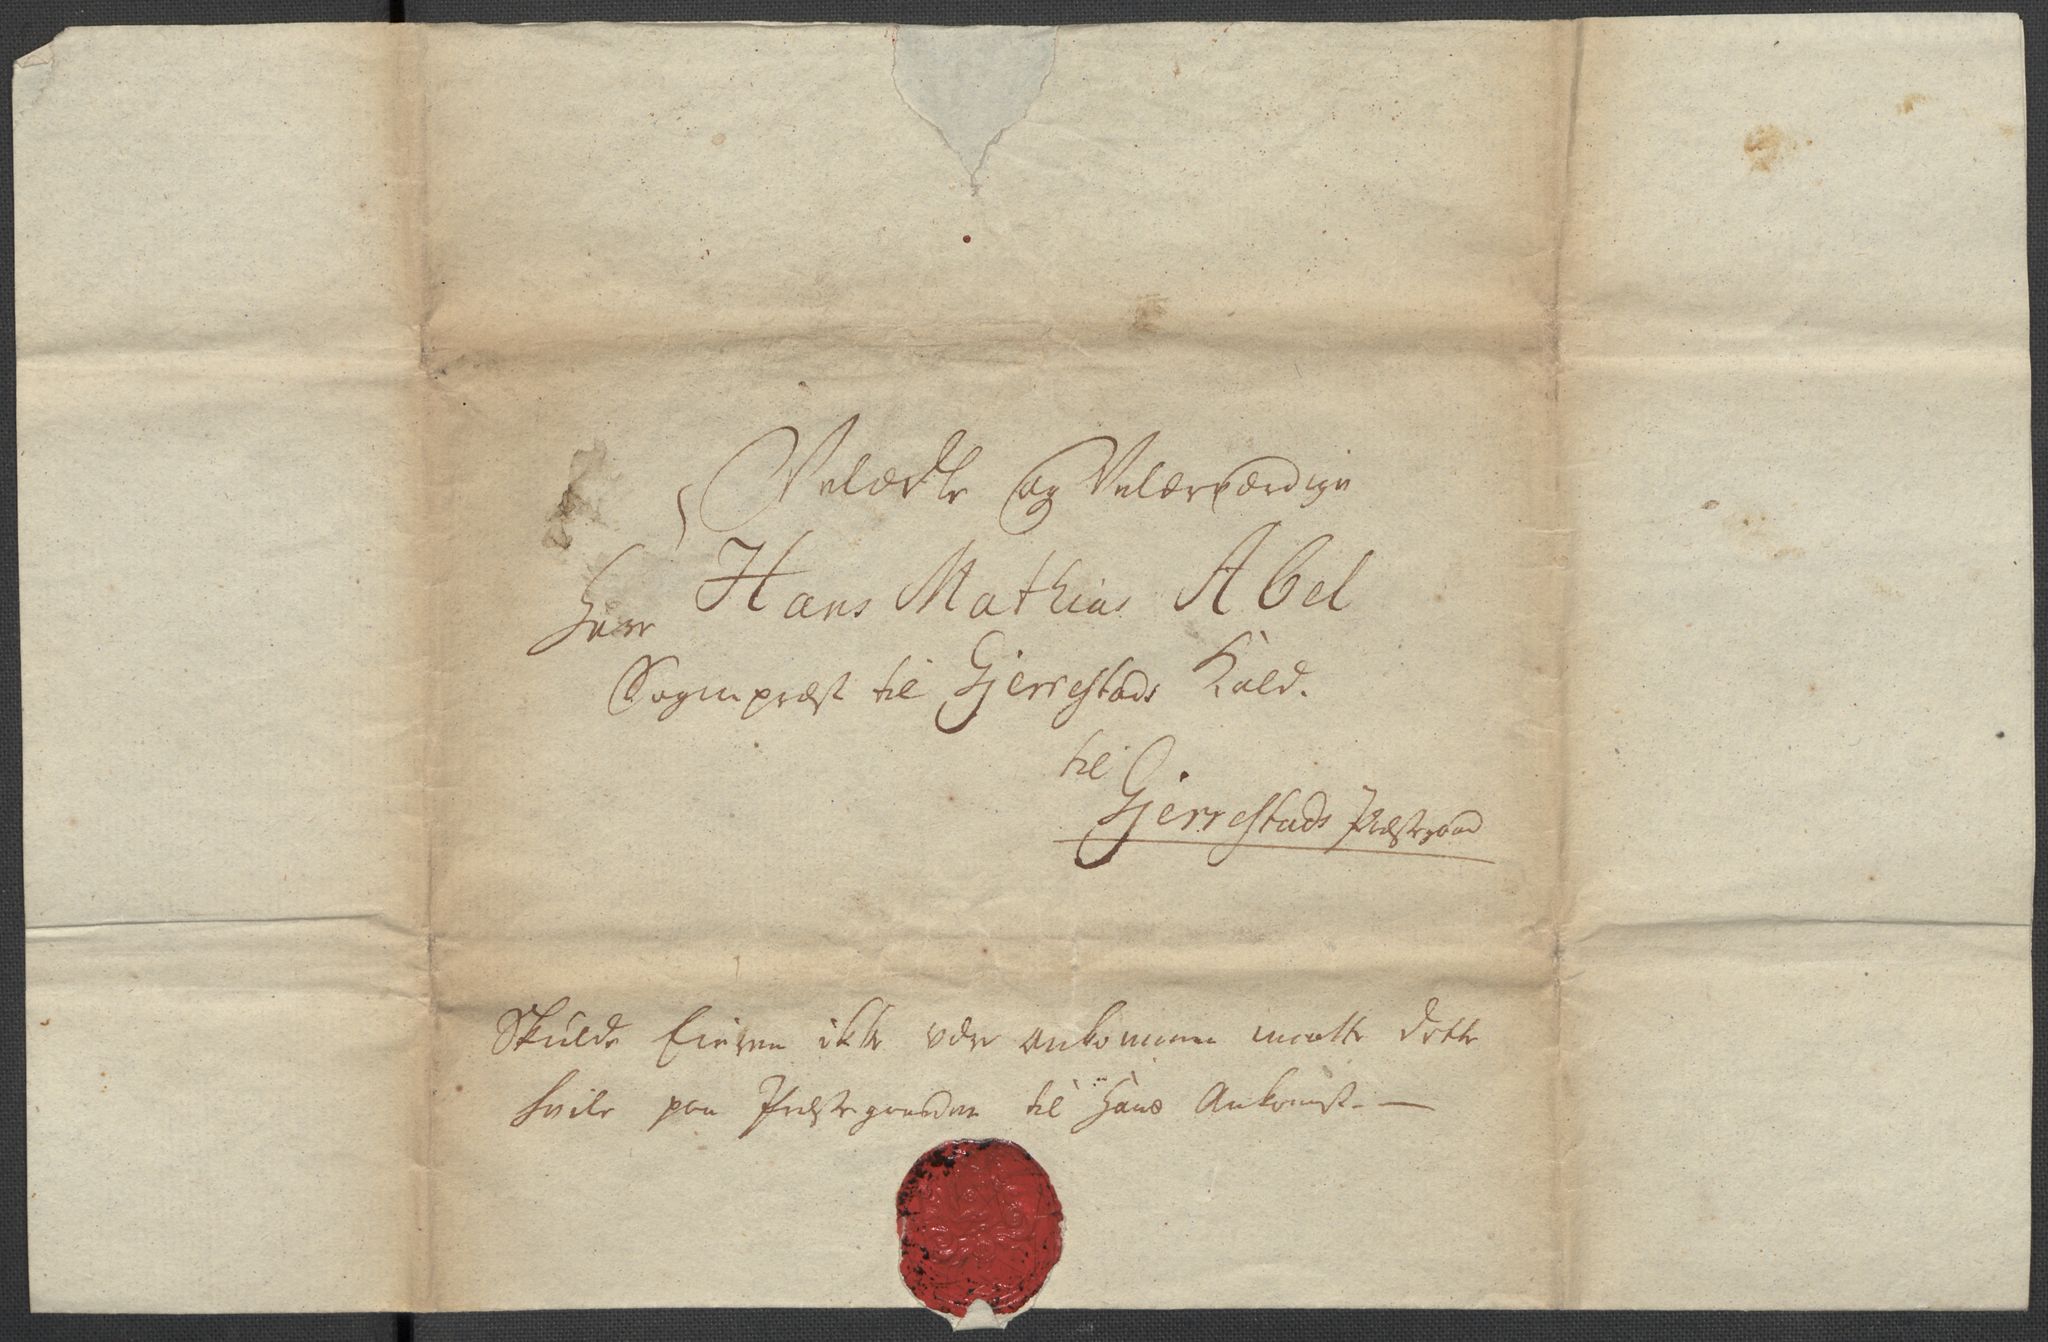 Velædle og Velærværdige
Herr Hans Mathias Abel
Sognepræst til Gjerrestads Kald.
til
Gjerrestads Præstegaard
Skulde Eieren ikke være ankommen maatte dette
hvile paa Præstegaarden til Hans Ankomst. —